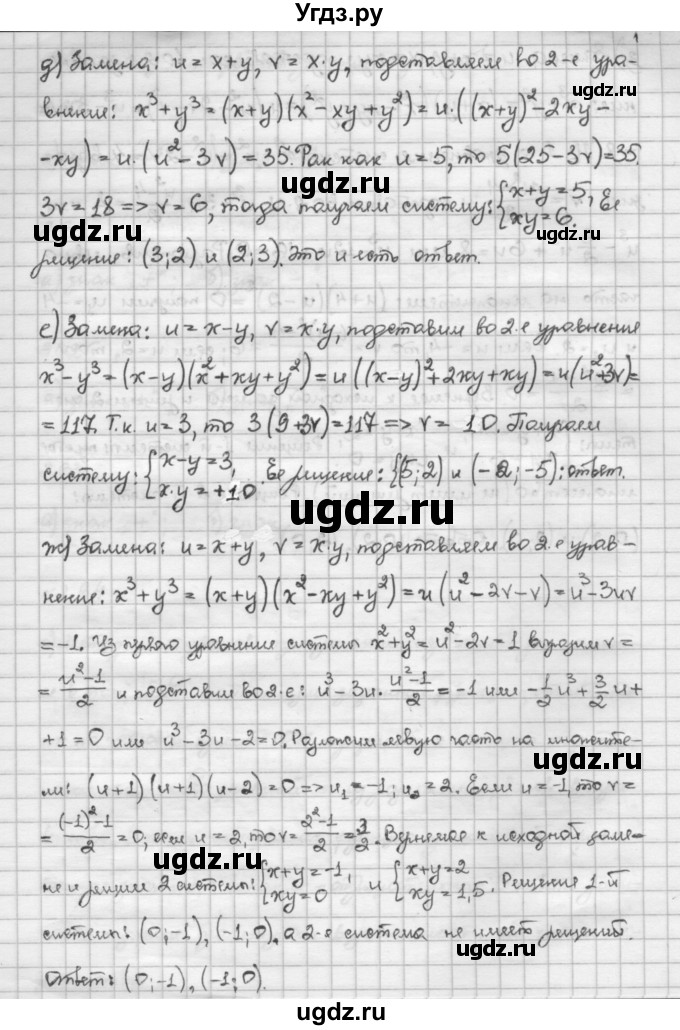 Угдз.ру
д) Замена: u = x+y, v = x·y, подставляем во 2-е урав-
внение: x³+y³ = (x+y)(x²-xy+y²) = u·((x+y)²-2xy-
-xy) = u·(u²-3v) = 35. Так как u=5, то 5(25-3v)=35.
3v=18 => v=6, тогда получаем систему: {x+y=5, xy=6. Её
решение: (3;2) и (2;3). Это и есть ответ.
е) Замена: u = x-y, v = x·y, подставим во 2-е уравнение
x³-y³ = (x-y)(x²+xy+y²) = u((x-y)²+2xy+xy) = u(u²+3v)=
= 117. Т.к. u=3, то 3(9+3v)=117 => v = 10. Получаем
систему: {x-y=3, x·y=+10. Её решение: {(5;2) и (-2;-5): ответ.
ж) Замена: u = x+y, v = x·y, подставляем во 2-е урав-
нение: x³+y³ = (x+y)(x²-xy+y²) = u(u²-2v-v) = u³-3uv
= -1. Из первого уравнение системы x²+y² = u²-2v = 1 выразим v =
= (u²-1)/2 и подставим во 2-е: u³-3u·(u²-1)/2 = -1 или -1/2u³+3/2u+
+1=0 или u³-3u-2=0. Разложим левую часть на множите-
ли: (u+1)(u+1)(u-2)=0 => u₁=-1; u₂=2. Если u=-1, то v=
= ((-1)²-1)/2 = 0; если u=2, то v = (2²-1)/2 = 3/2. Вернемся к исходной заме-
не и решим 2 системы: {x+y=-1, xy=0 и {x+y=2 xy=1,5. Решения 1-й
системы: (0;-1), (-1;0), а 2-е система не имеет решений.
Ответ: (0;-1), (-1;0).
ugdz.ru
ugdz.ru
ugdz.ru
ugdz.ru
ugdz.ru
ugdz.ru
ugdz.ru
ugdz.ru
ugdz.ru
ugdz.ru
ugdz.ru
ugdz.ru
ugdz.ru
ugdz.ru